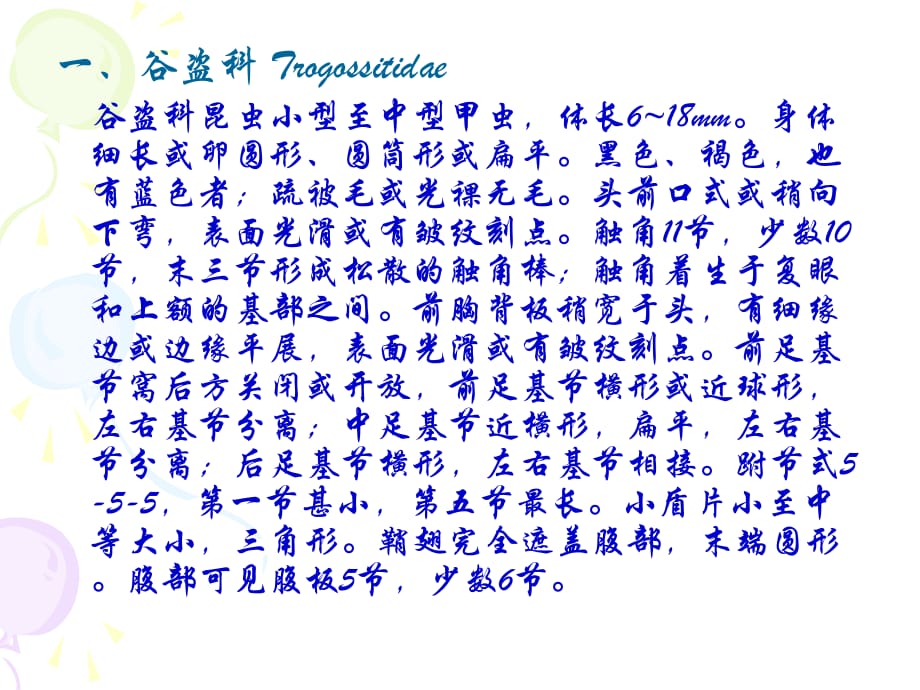 一、谷盗科 Trogossitidae
谷盗科昆虫小型至中型甲虫，体长6~18mm。身体
细长或卵圆形、圆筒形或扁平。黑色、褐色，也
有蓝色者；疏被毛或光裸无毛。头前口式或稍向
下弯，表面光滑或有皱纹刻点。触角11节，少数10
节，末三节形成松散的触角棒；触角着生于复眼
和上额的基部之间。前胸背板稍宽于头，有细缘
边或边缘平展，表面光滑或有皱纹刻点。前足基
节窝后方关闭或开放，前足基节横形或近球形，
左右基节分离；中足基节近横形，扁平，左右基
节分离；后足基节横形，左右基节相接。跗节式5
-5-5，第一节甚小，第五节最长。小盾片小至中
等大小，三角形。鞘翅完全遮盖腹部，末端圆形
。腹部可见腹板5节，少数6节。